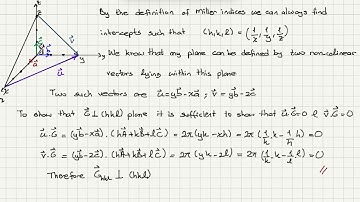 By the definition of miller indices we can always find
intercepts such that (h,k,l) = (1/x, 1/y, 1/z)
We know that any plane can be defined by two non-colinear
vectors lying within this plane
Two such vectors are u⃗=yb⃗-xa⃗ ; v⃗ = yb⃗-zc⃗
To show that G⃗⊥(hkl) plane it is sufficient to show that u⃗.G⃗=0 & v⃗.G⃗=0
u⃗.G⃗ = (yb⃗-xa⃗).(hA⃗+kB⃗+lC⃗) = 2π(yk-xh) = 2π(1/k k - 1/h h) = 0
v⃗.G⃗ = (yb⃗-zc⃗).(hA⃗+kB⃗+lC⃗) = 2π(yk-zl) = 2π(1/k k - 1/l l) = 0
Therefore G⃗hkl ⊥ (hkl)